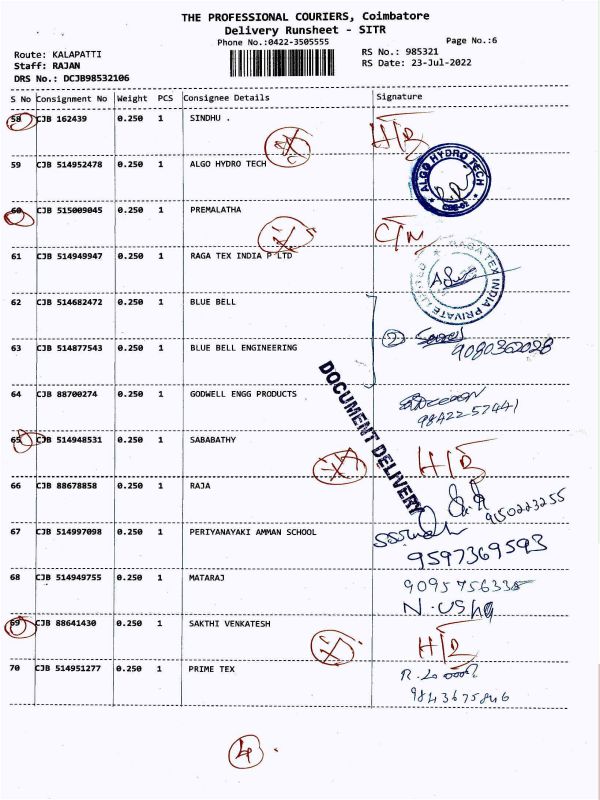 THE PROFESSIONAL COURIERS, Coimbatore
Delivery Runsheet - SITR
Phone No.:0422-3505555 Page No.:6
Route: KALAPATTI RS No.: 985321
Staff: RAJAN RS Date: 23-Jul-2022
DRS No.: DCJB98532106
S No Consignment No Weight PCS Consignee Details Signature
58 CJB 162439 0.250 1 SINDHU . H/B
59 CJB 514952478 0.250 1 ALGO HYDRO TECH ALGO HYDRO TECH
60 CJB 515009045 0.250 1 PREMALATHA
61 CJB 514949947 0.250 1 RAGA TEX INDIA P LTD RAGA TEX INDIA PRIVATE LIMITED
62 CJB 514682472 0.250 1 BLUE BELL
63 CJB 514877543 0.250 1 BLUE BELL ENGINEERING 2
64 CJB 88700274 0.250 1 GODWELL ENGG PRODUCTS 9842257441
DOCUMENT DELIVERY
65 CJB 514948531 0.250 1 SABABATHY H/B
66 CJB 88678858 0.250 1 RAJA 9150223255
67 CJB 514997098 0.250 1 PERIYANAYAKI AMMAN SCHOOL 9597369593
68 CJB 514949755 0.250 1 MATARAJ 9095756335
N.Usha
69 CJB 88641430 0.250 1 SAKTHI VENKATESH H/B
70 CJB 514951277 0.250 1 PRIME TEX
9843675846
4